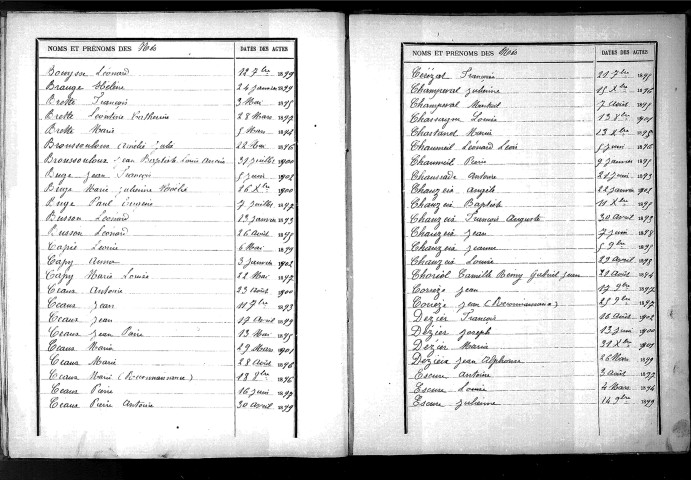 NOMS ET PRÉNOMS DES Nés DATES DES ACTES
Bouysse Léonard 12 7bre 1899
Brauge Hélène 24 janvier 1899
Brette François 3 Mai 1895
Brette Léontine Catherine 28 Mars 1892
Brette Marie 5 Mars 1894
Broussouloux Amélie Julie 22 Mai 1896
Broussouloux Jean Baptiste Louis 31 juillet 1900
Buge Jean François 5 juin 1902
Buge Marie Julienne 16 Xbre 1900
Buge Paul 7 juillet 1897
Buisson Léonard 13 janvier 1893
Buisson Léonard 26 Août 1895
Capié Léonie 6 Mai 1899
Capy Anna 3 janvier 1902
Capy Marie Louise 22 Mai 1897
Ceaux Antonin 23 Août 1900
Ceaux Jean 11 7bre 1893
Ceaux Jean 17 Avril 1899
Ceaux Jean Pierre 13 Mai 1895
Ceaux Maria 29 Mars 1901
Ceaux Marie 28 Août 1896
Ceaux Marie (Reconnaissance) 18 8bre 1896
Ceaux Pierre 16 juin 1892
Ceaux Pierre Antoine 30 avril 1899
NOMS ET PRÉNOMS DES Nés DATES DES ACTES
Cérézat François 21 7bre 1895
Champeval Julienne 15 Xbre 1896
Champeval 7 Août 1895
Chassagne Louise 13 8bre 1901
Chastanet Marie 13 Xbre 1895
Chaumeil Léonard Léon 5 juin 1896
Chaumeil Pierre 9 janvier 1895
Chausade Antoine 21 juin 1893
Chauzeix Angèle 22 janvier 1902
Chauzeix Baptiste 11 Xbre 1895
Chauzeix François Auguste 30 Avril 1893
Chauzeix Jean 7 juin 1898
Chauzeix Jeanne 5 9bre 1895
Chauzeix Louise 29 Avril 1893
Choriol Camille Rémy Gabriel Jean 21 Août 1894
Corrèze Jean 17 9bre 1897
Corrèze Jean (Reconnaissance) 25 9bre 1897
Dézier François 16 Août 1902
Dézier Joseph 13 juin 1900
Dézier Maria 31 Xbre 1901
Dézière Jean Alphonse 26 Mars 1899
Escure Antoine 3 Août 1897
Escure Louise 4 Mars 1894
Escure Julienne 14 9bre 1899